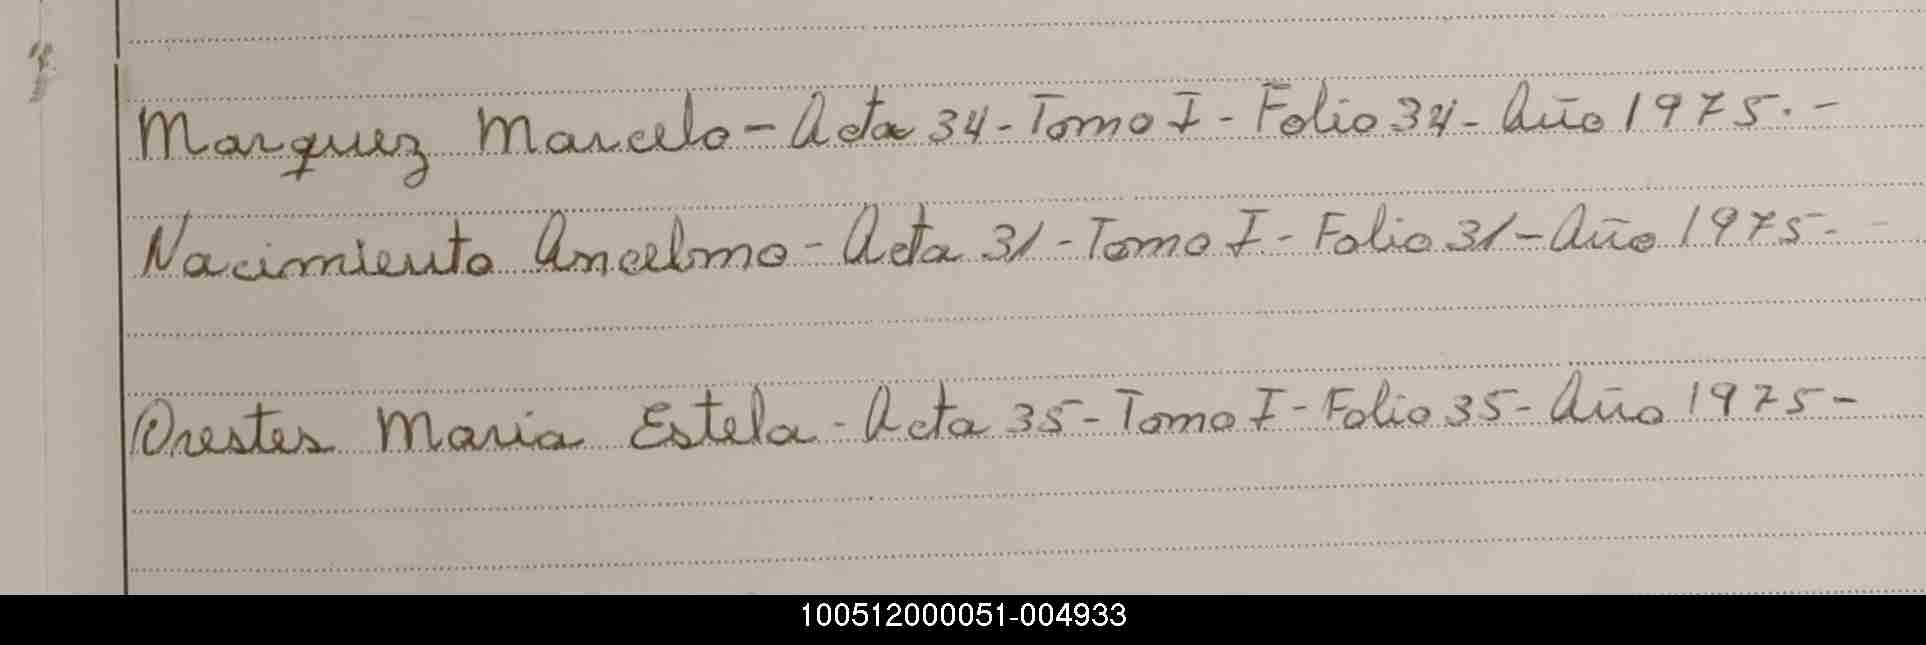 Marquez Marcelo - Acta 34 - Tomo I - Folio 34 - Año 1975. -
Nacimiento Ancelmo - Acta 31 - Tomo I - Folio 31 - Año 1975 - -
Orestes Maria Estela - Acta 35 - Tomo I - Folio 35 - Año 1975 -
100512000051-004933